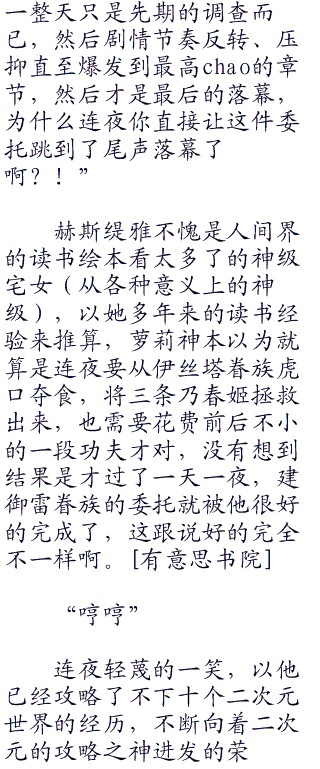 一整天只是先期的调查而
已，然后剧情节奏反转、压
抑直至爆发到最高chao的章
节，然后才是最后的落幕，
为什么连夜你直接让这件委
托跳到了尾声落幕了
啊？！”
赫斯缇雅不愧是人间界
的读书绘本看太多了的神级
宅女（从各种意义上的神
级），以她多年来的读书经
验来推算，萝莉神本以为就
算是连夜要从伊丝塔眷族虎
口夺食，将三条乃春姬拯救
出来，也需要花费前后不小
的一段功夫才对，没有想到
结果是才过了一天一夜，建
御雷眷族的委托就被他很好
的完成了，这跟说好的完全
不一样啊。[有意思书院]
“哼哼”
连夜轻蔑的一笑，以他
已经攻略了不下十个二次元
世界的经历，不断向着二次
元的攻略之神进发的荣